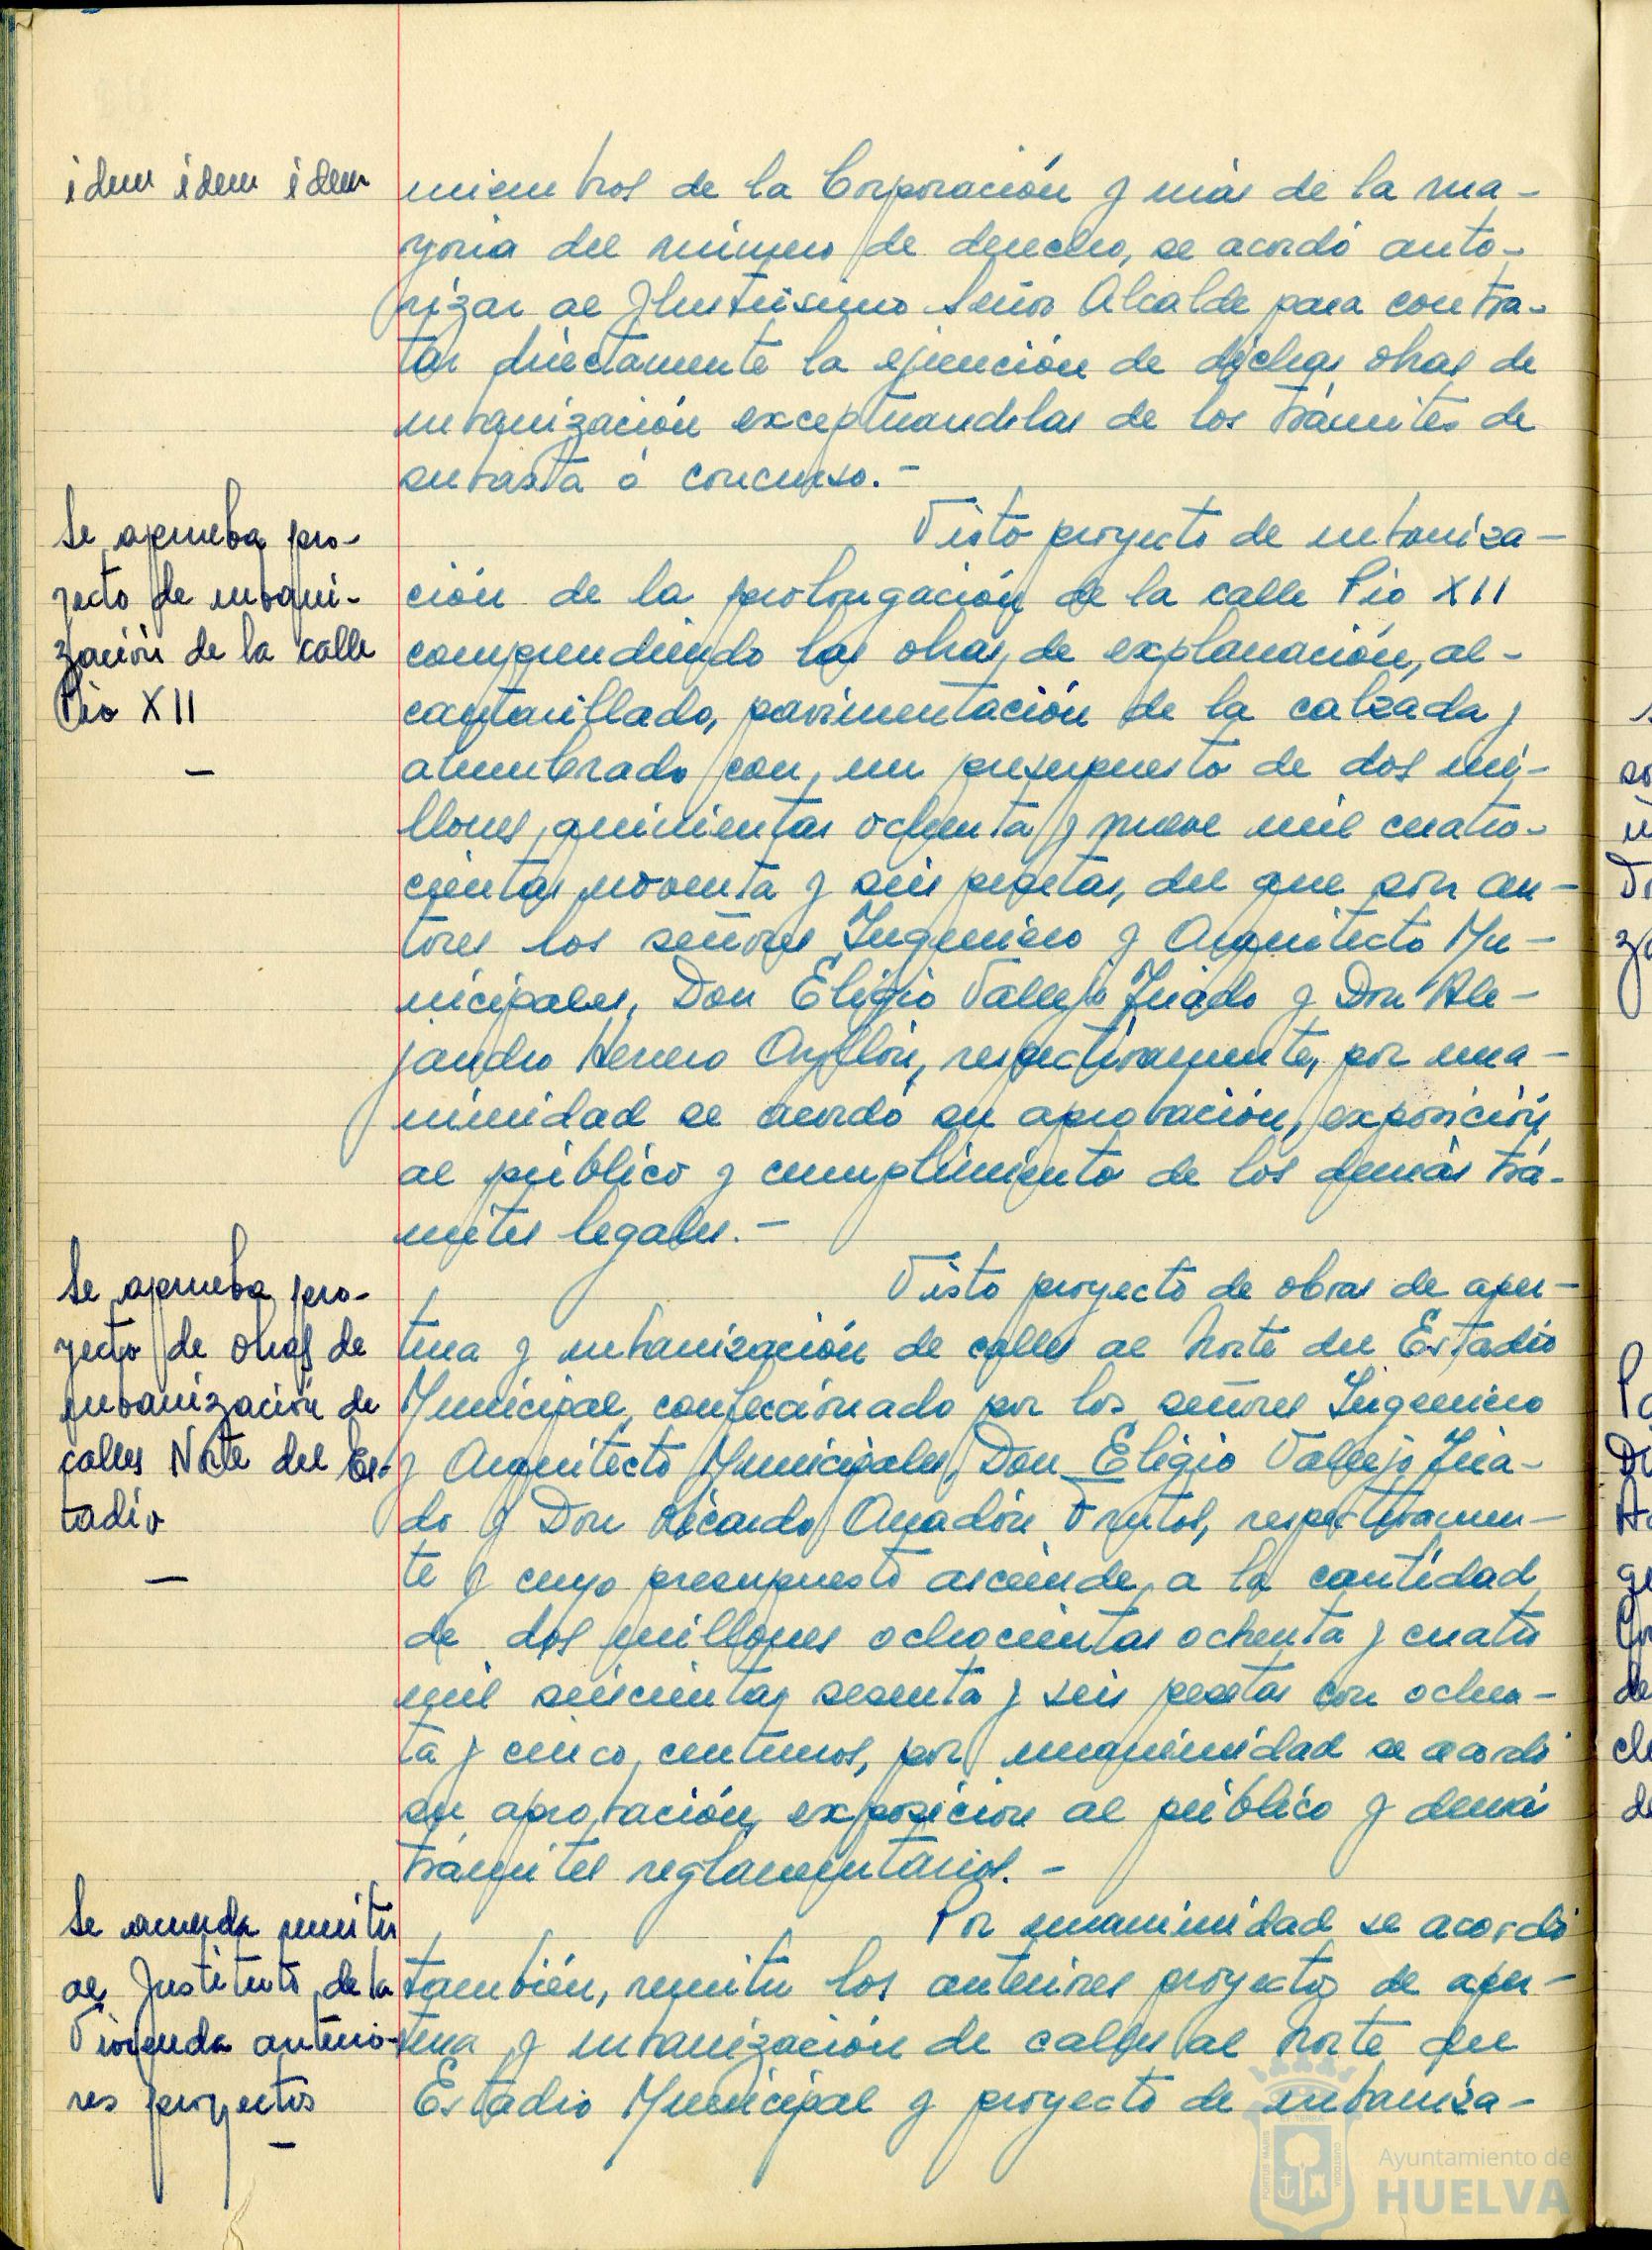 idem idem idem
miembros de la Corporación y más de la ma-
yoria del número de derecho, se acordó auto-
rizar al Ilustrisimo Señor Alcalde para contra-
tar directamente la ejecución de dichas obras de
urbanización exceptuandolas de los trámites de
subasta ó concurso.-
Se aprueba pro-
yecto de urbani-
zación de la calle
Pio XII
-
Visto proyecto de urbaniza-
ción de la prolongación de la calle Pio XII
comprendiendo las obras de explanación, al-
cantarillado, pavimentación de la calzada y
alumbrado con un presupuesto de dos mi-
llones quinientas ochenta y nueve mil cuatro-
cientas noventa y seis pesetas, del que son au-
tores los señores Ingeniero y Arquitecto Mu-
nicipales, Don Eligio Vallejo Jurado y Don Ale-
jandro Herrero Ayllón, respectivamente, por una-
nimidad se acordó su aprobación, exposición
al público y cumplimiento de los demás trá-
mites legales.-
Se aprueba pro-
yecto de obras de
urbanización de
calles Norte del Es-
tadio
-
Visto proyecto de obras de aper-
tura y urbanización de calles al Norte del Estadio
Municipal, confeccionado por los señores Ingeniero
y Arquitecto Municipales, Don Eligio Vallejo Jura-
do y Don Ricardo Anadón Frutos, respectivamen-
te y cuyo presupuesto asciende a la cantidad
de dos millones ochocientas ochenta y cuatro
mil seiscientas sesenta y seis pesetas con ochen-
ta y cinco centimos, por unanimidad se acordó
su aprobación, exposición al público y demás
trámites reglamentarios.-
Se acuerda remitir
al Instituto de la
Vivienda anterio-
res proyectos
-
Por unanimidad se acordó
también, remitir los anteriores proyectos de aper-
tura y urbanización de calles al Norte del
Estadio Municipal y proyecto de urbaniza-
Ayuntamiento de
HUELVA